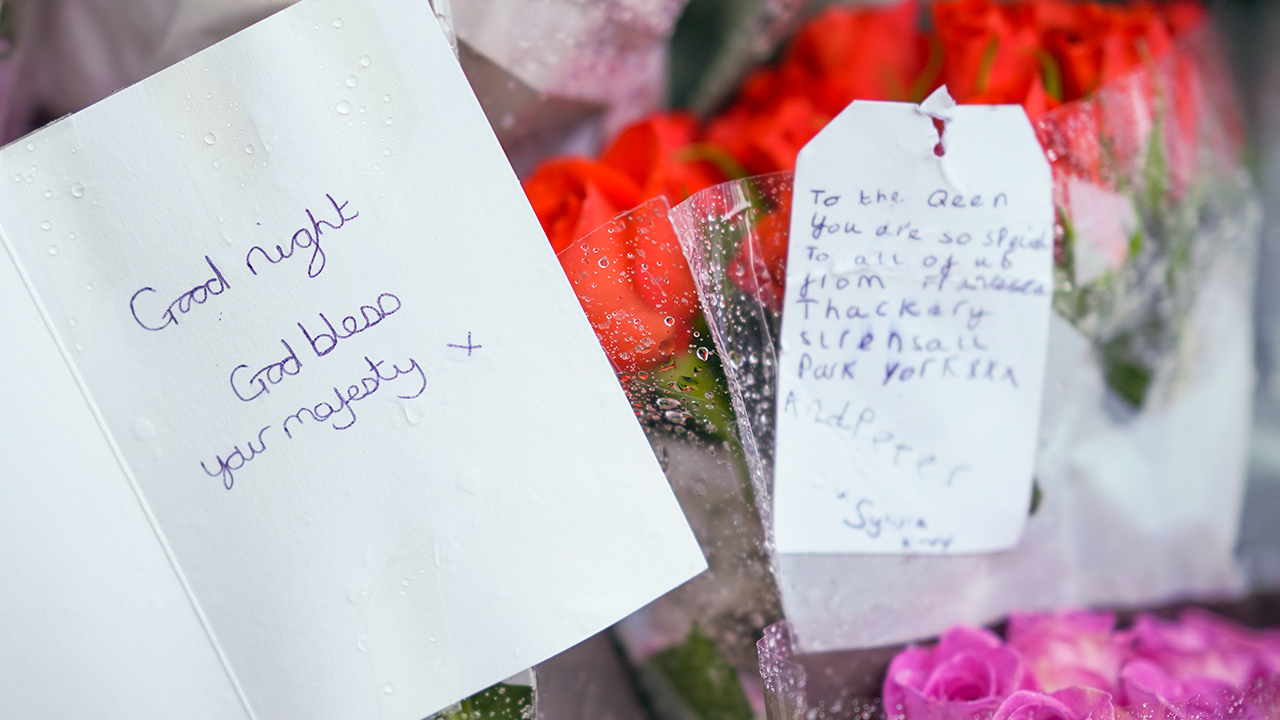 Good night
God bless
your majesty x
To the Qeen
You are so
To all of us
from
Thackery
Strensall
Park York xxx
And Peter
Sylvia